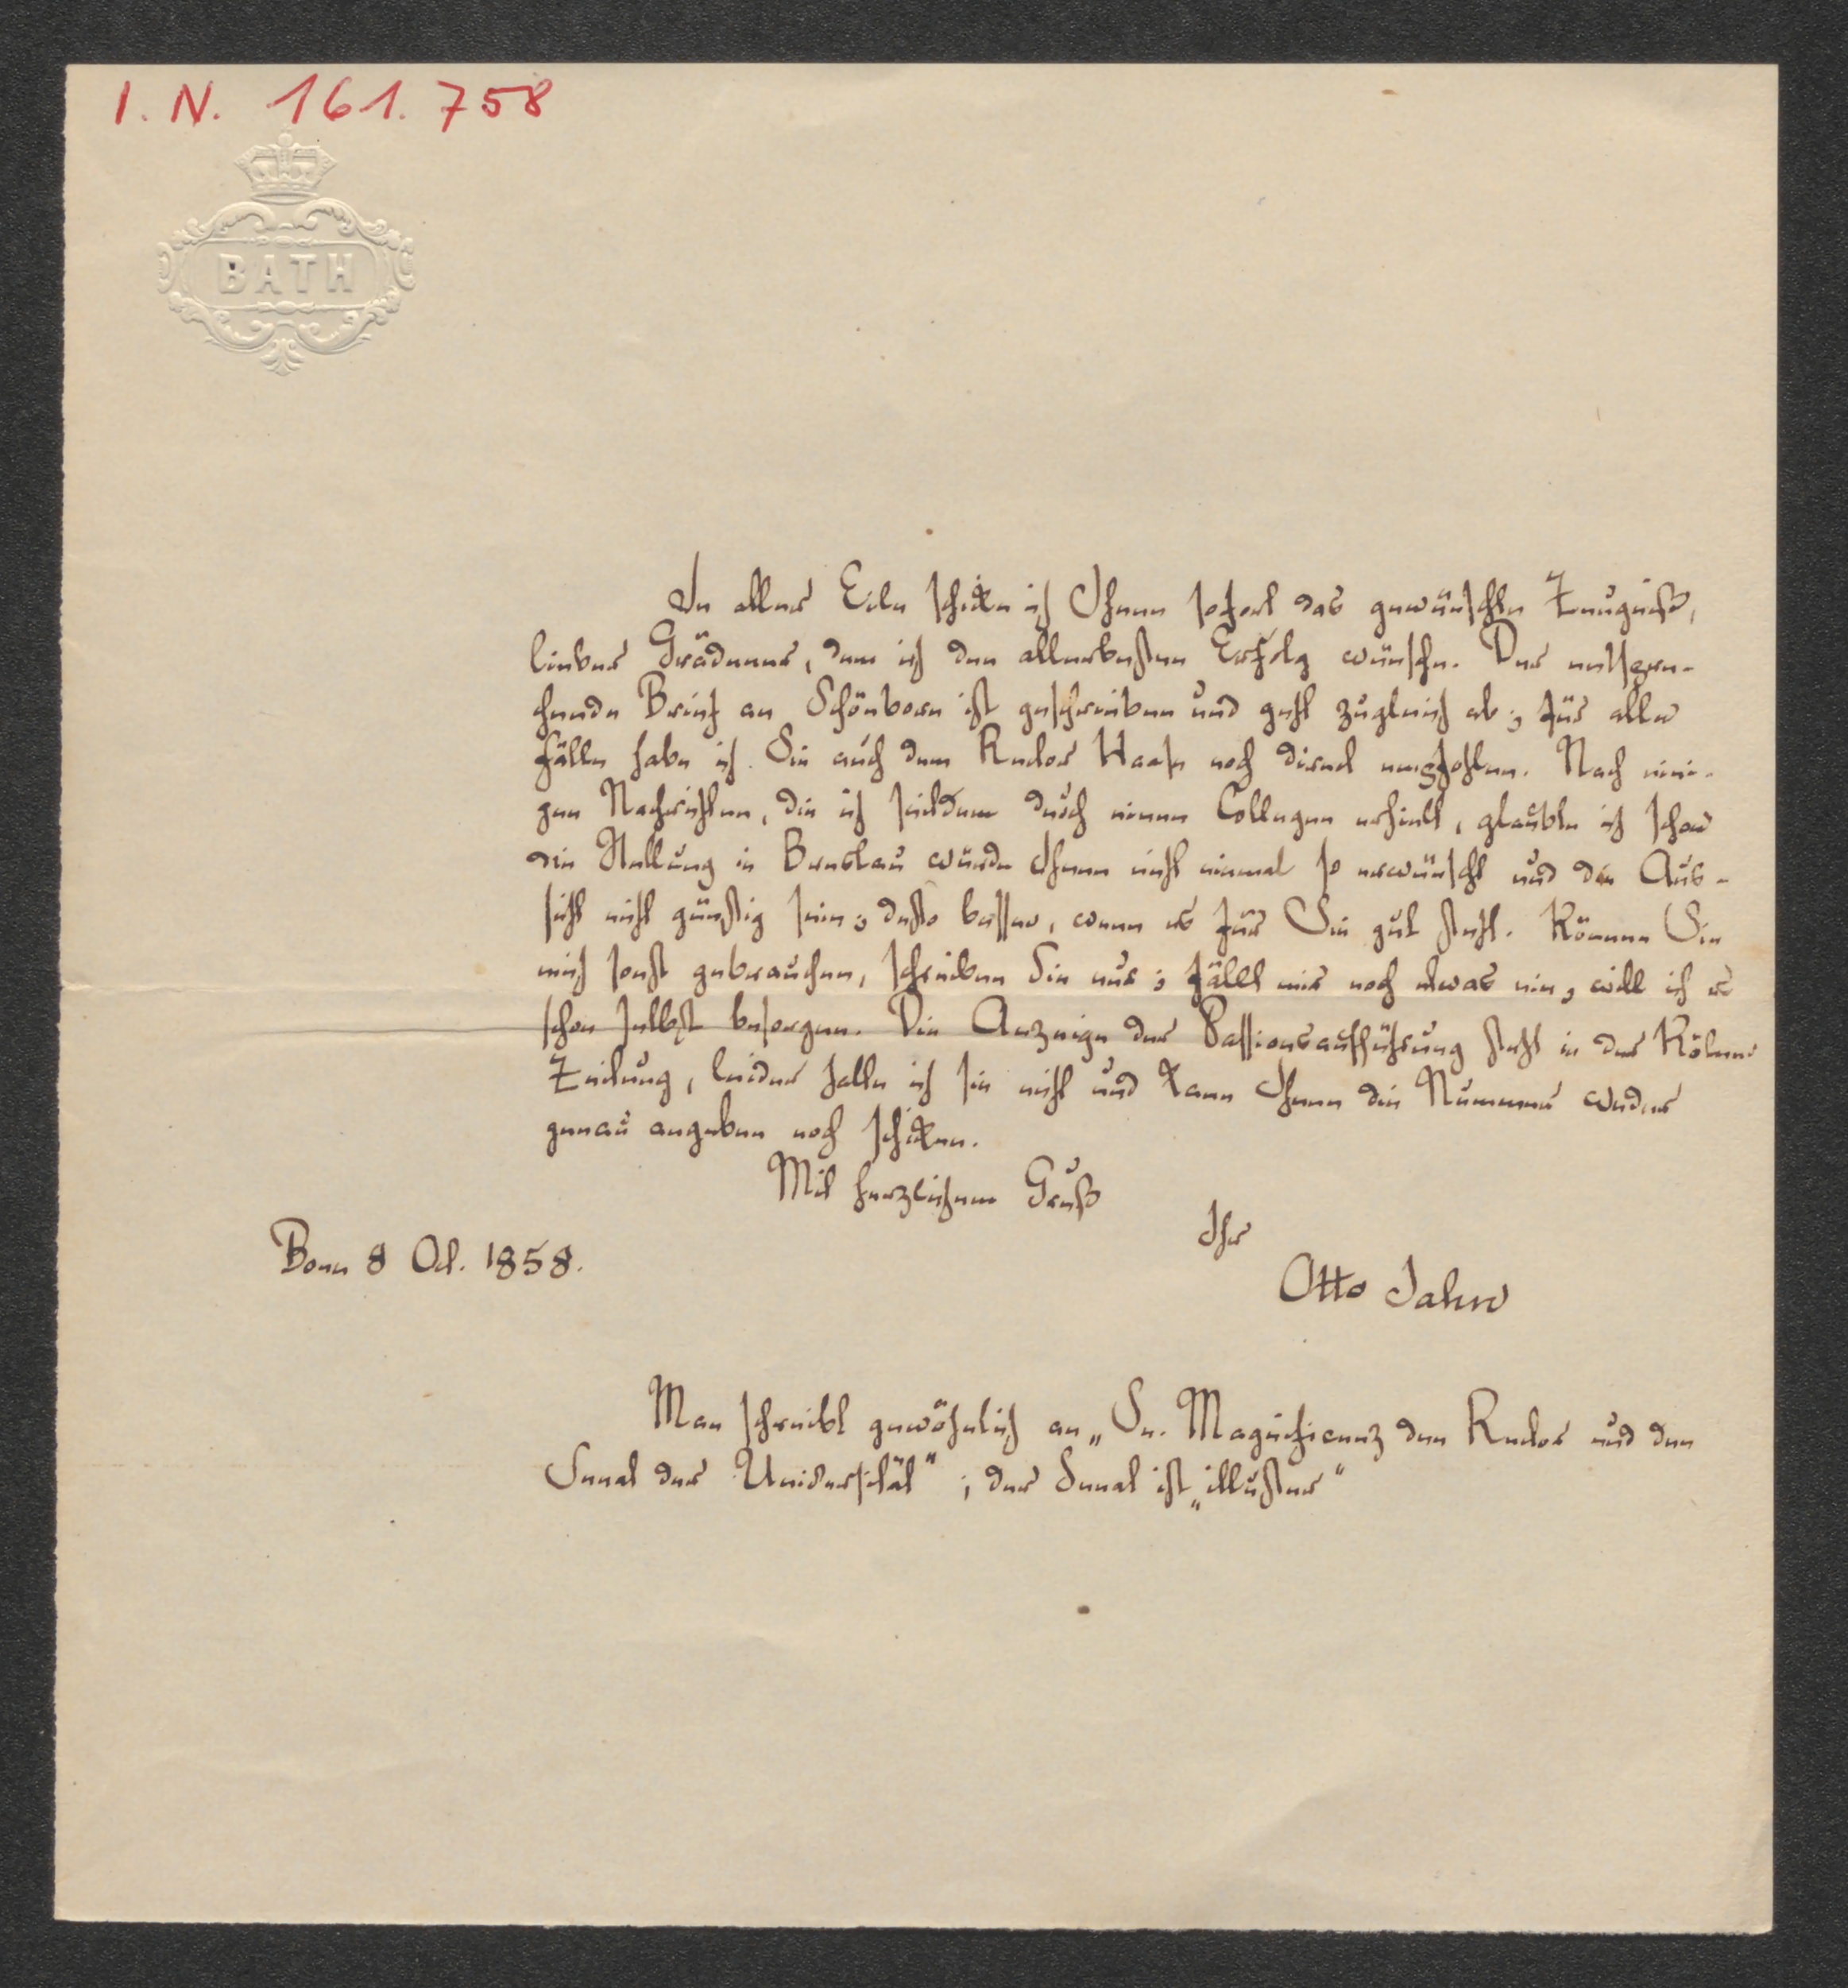 I. N. 161.758
BATH
In aller Eile schicke ich Ihnen sofort das gewünschte Zeugniß,
lieber Grädener, dem ich den allerbesten Erfolg wünsche. Der entspre-
chende Brief an Schönborn ist geschrieben und geht zugleich ab; für alle
Fälle habe ich Sie auch dem Rector Haase noch direct empfohlen. Nach eini-
gen Nachrichten, die ich seitdem durch einen Collegen erhielt, glaubte ich schon
die Stellung in Breslau würde Ihnen nicht einmal so erwünscht und die Aus-
sicht nicht günstig sein; desto besser, wenn es für Sie gut steht. Können Sie
mich sonst gebrauchen, schreiben Sie nur; fällt mir noch etwas ein, will ich es
schon selbst besorgen. Die Anzeige der Passionsaufführung steht in der Kölner
Zeitung, leider halte ich sie nicht und kann Ihnen die Nummer weder
genau angeben noch schicken.
Mit herzlichem Gruß
Ihr
Bonn 8 Oct. 1858.
Otto Jahn
Man schreibt gewöhnlich an „Se. Magnificenz den Rector und den
Senat der Universität"; der Senat ist „illuster"